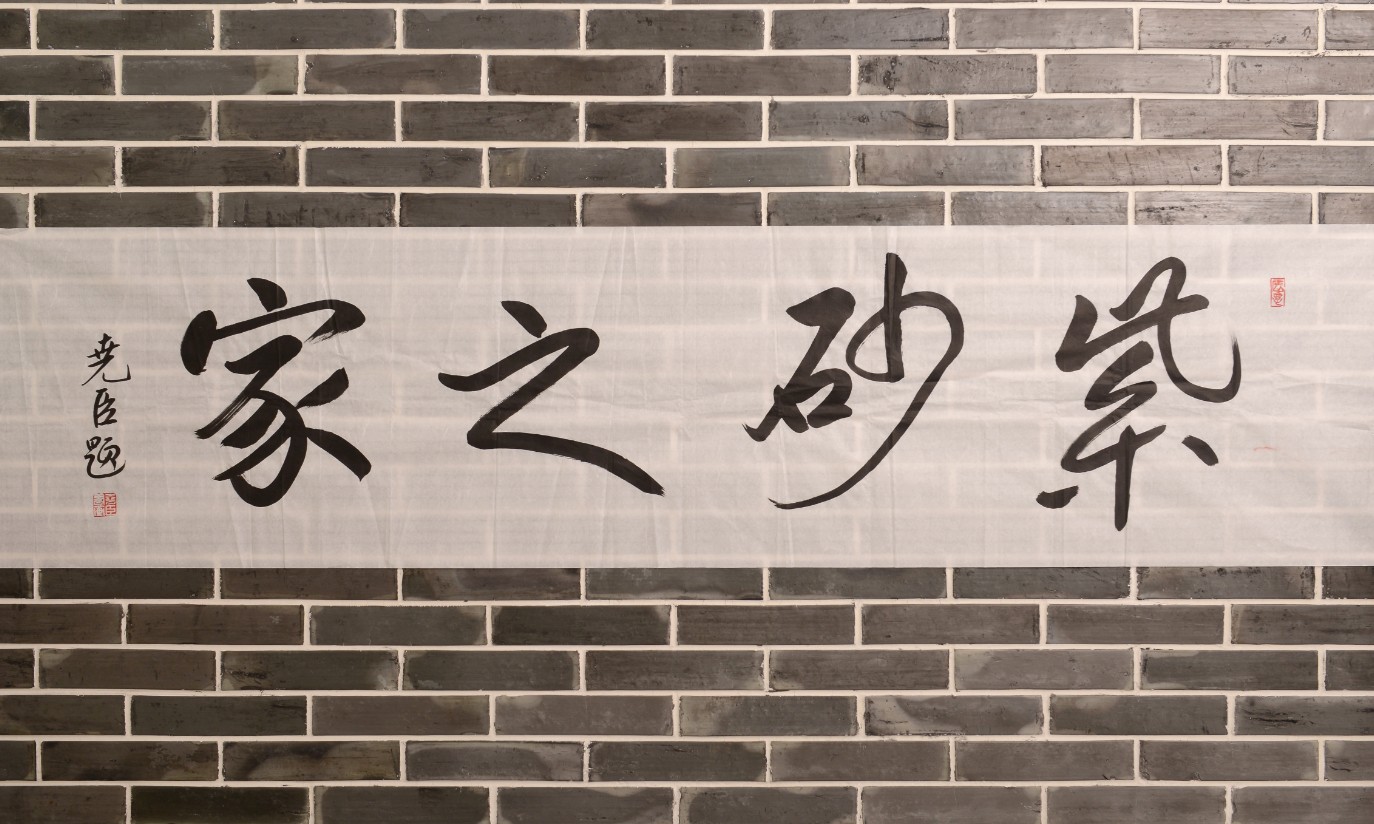 紫砂之家
尧臣题